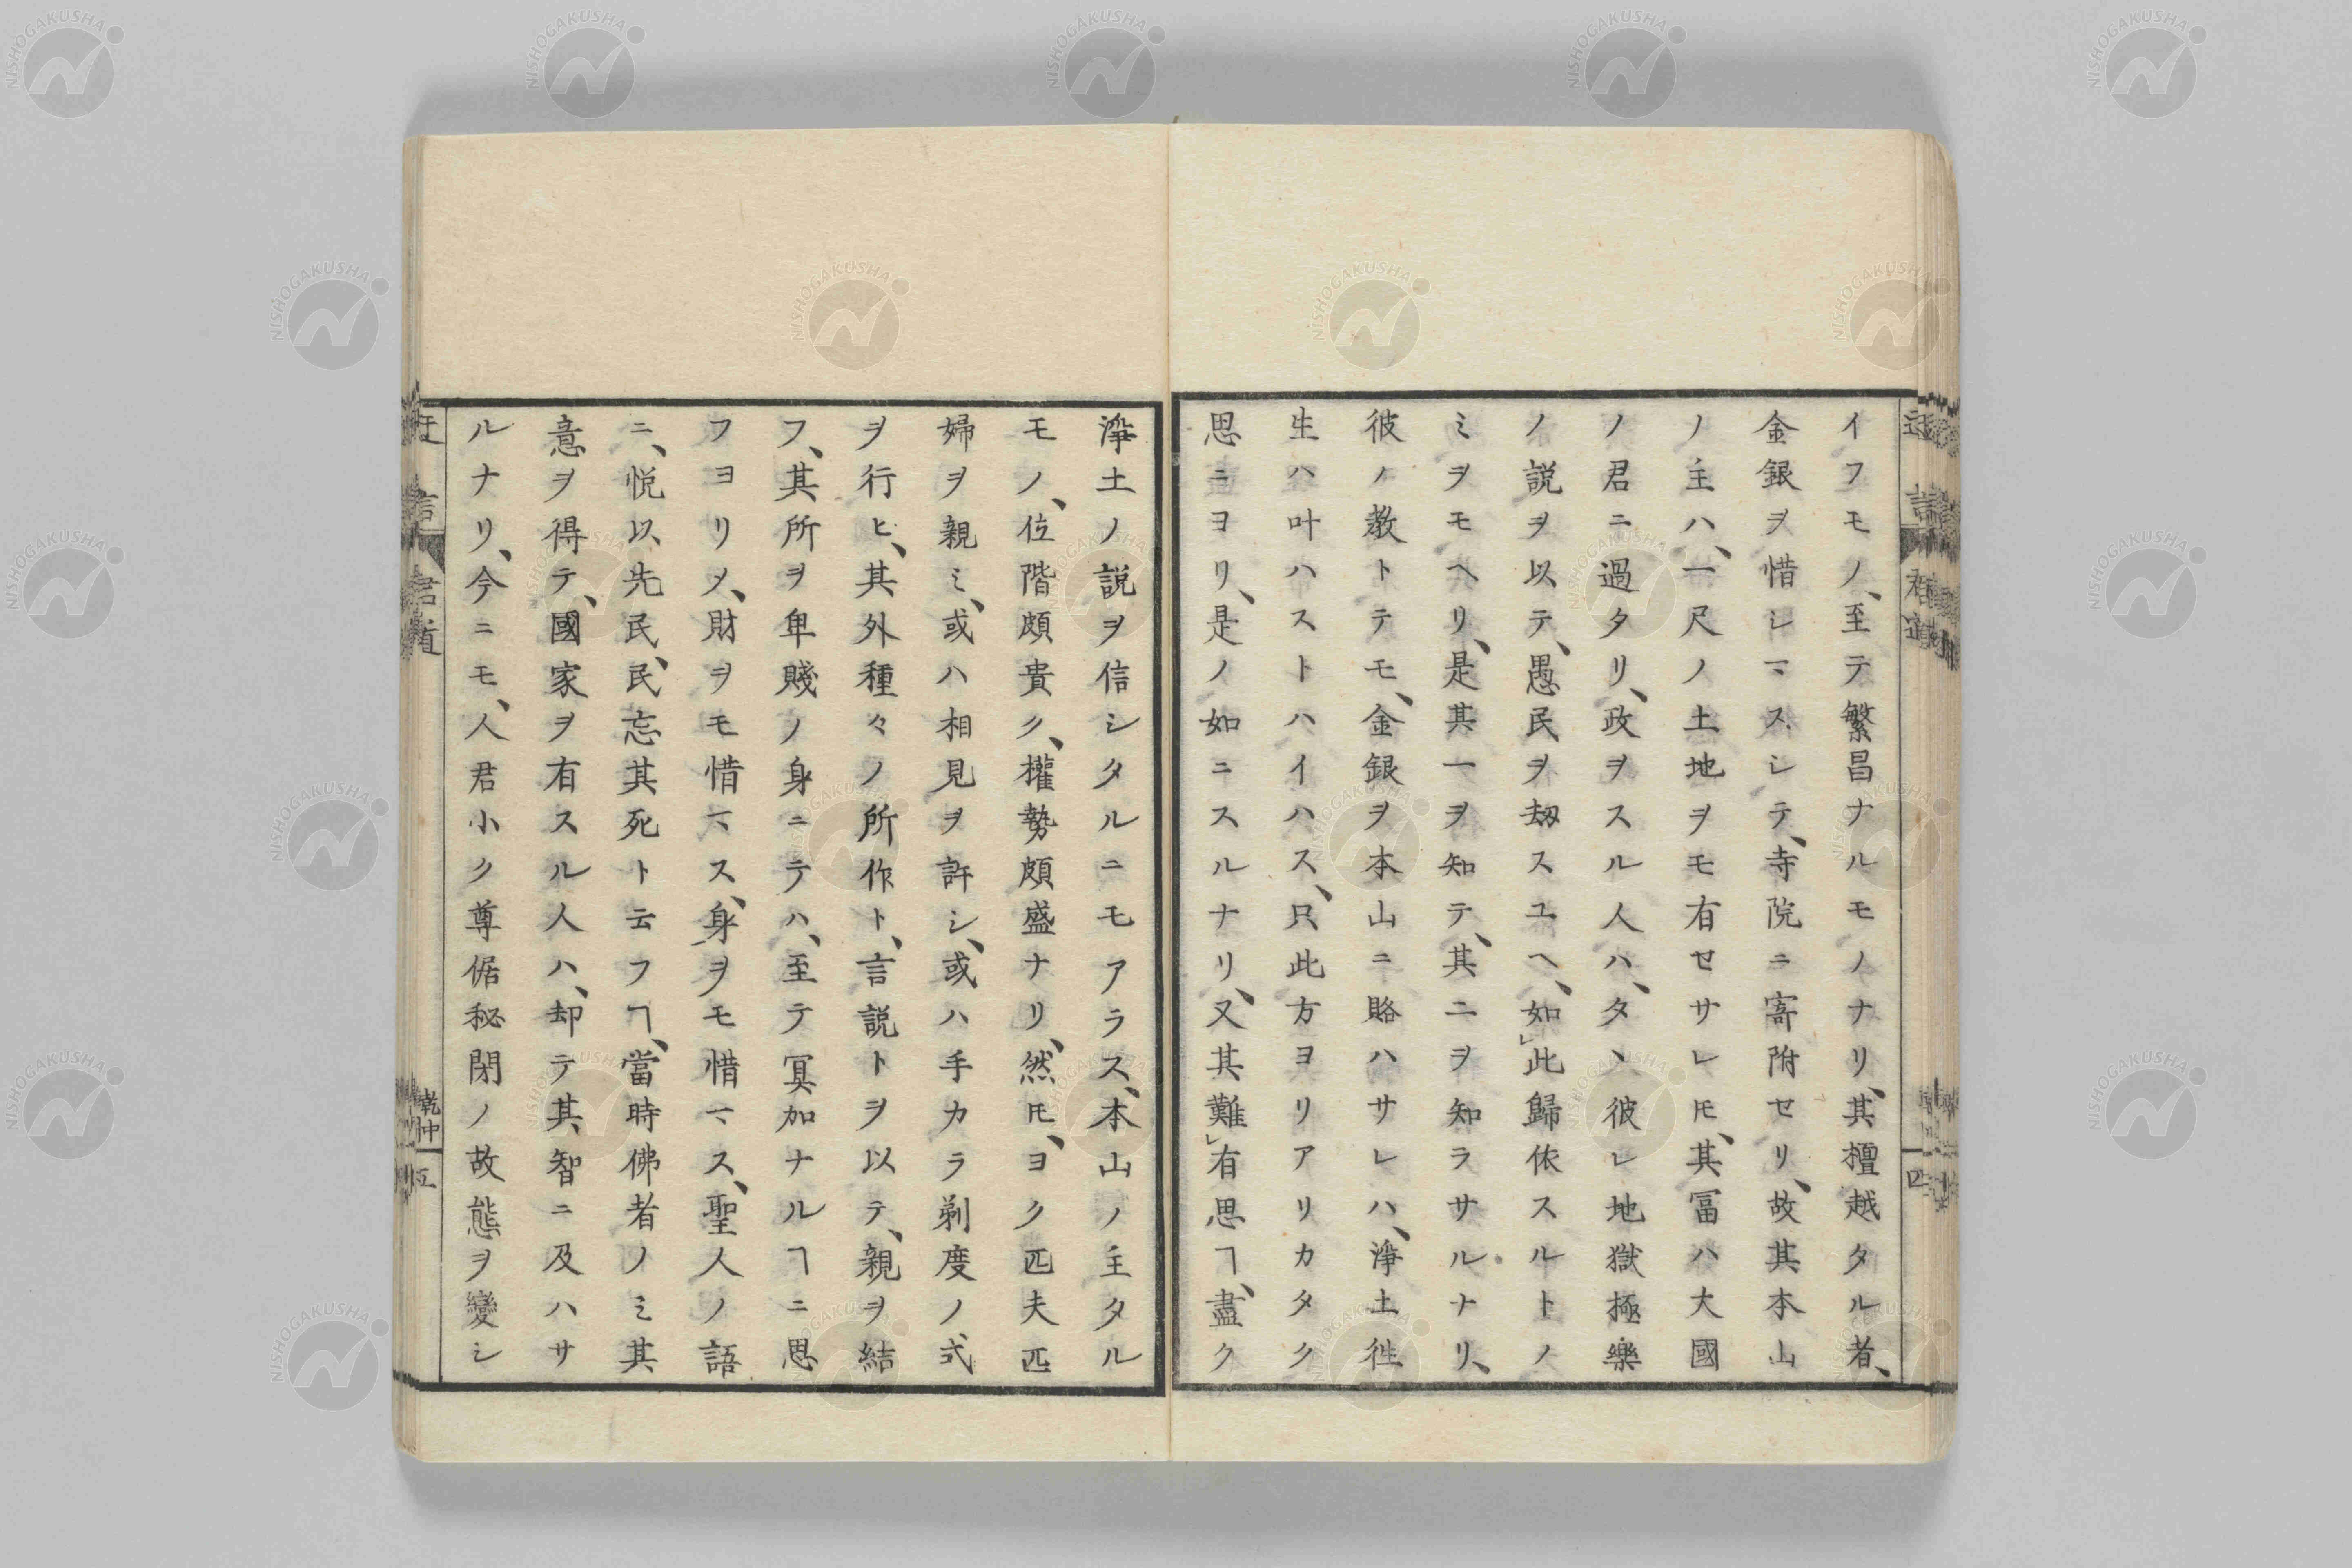 イフモノ、至テ繁昌ナルモノナリ、其檀越タル者、
金銀ヲ惜シマスシテ、寺院ニ寄附セリ、故其本山
ノ主ハ、一尺ノ土地ヲモ有セサレ𪜈、其冨ハ大國
ノ君ニ過タリ、政ヲスル人ハ、タヽ彼レ地獄極樂
ノ説ヲ以テ、愚民ヲ劫スユヘ、如此歸依スルトノ
ミヲモヘリ、是其一ヲ知テ、其二ヲ知ラサルナリ、
彼ノ教トテモ、金銀ヲ本山ニ賂ハサレハ、淨土徃
生ハ叶ハストハイハス、只此方ヨリアリカタク
思ニヨリ、是ノ如ニスルナリ、又其難有思ヿ、盡ク
淨土ノ説ヲ信シタルニモアラス、本山ノ主タル
モノ、位階頗貴ク、權勢頗盛ナリ、然𪜈、ヨク匹夫匹
婦ヲ親ミ、或ハ相見ヲ許シ、或ハ手カラ剃度ノ式
ヲ行ヒ、其外種々ノ所作ト、言説トヲ以テ、親ヲ結
フ、其所ヲ卑賤ノ身ニテハ、至テ冥加ナルヿニ思
フヨリメ、財ヲモ惜マス、身ヲモ惜マス、聖人ノ語
ニ、悦以先民、民忘其死ト云フヿ、當時佛者ノミ其
意ヲ得テ、國家ヲ有スル人ハ、却テ其智ニ及ハサ
ルナリ、今ニモ、人君小ク尊倨秘閉ノ故態ヲ變シ
迂言
君道
乾中
五